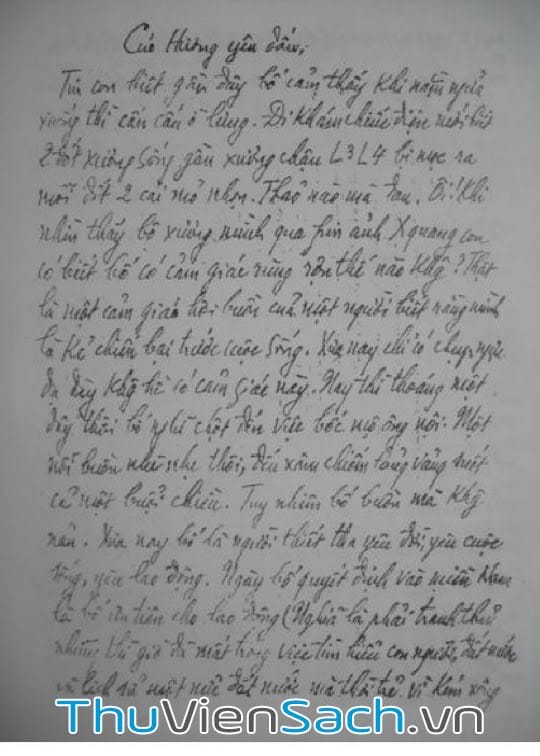 Cúc Hương yêu dấu,
Tin con biết gần đây bố cảm thấy khi nằm ngửa
xuống thì cấn cấn ở lưng. Đi khám chiếu điện mới biết
2 đốt xương sống gần xương chậu L3 L4 bị mọc ra
mỗi đốt 2 cái mỏ nhọn. Thảo nào mà đau. Ôi! Khi
nhìn thấy bộ xương mình qua phim ảnh X quang con
có biết bố có cảm giác rùng rợn thế nào khg? Thật
là một cảm giác hơi buồn của một người biết rằng mình
là kẻ chiến bại trước cuộc sống. Xưa nay chỉ có
đây khg hề có cảm giác này. Nay thì thoáng một
đây thôi bố nghĩ chợt đến việc bốc mộ ông nội. Một
nỗi buồn nhè nhẹ thôi, đến xâm chiếm lảng vảng mất
cả một buổi chiều. Tuy nhiên bố buồn mà khg
nản. Xưa nay bố là người thiết tha yêu đời, yêu cuộc
sống, yêu lao động. Ngày bố quyết định vào miền Nam
là bố ưu tiên cho lao động (Nghĩa là phải tranh thủ
những thì giờ đã mất trong việc tìm hiểu con người, đất nước
và lịch sử một nửa đất nước mà thời trẻ vì
ThuVienSach.vn